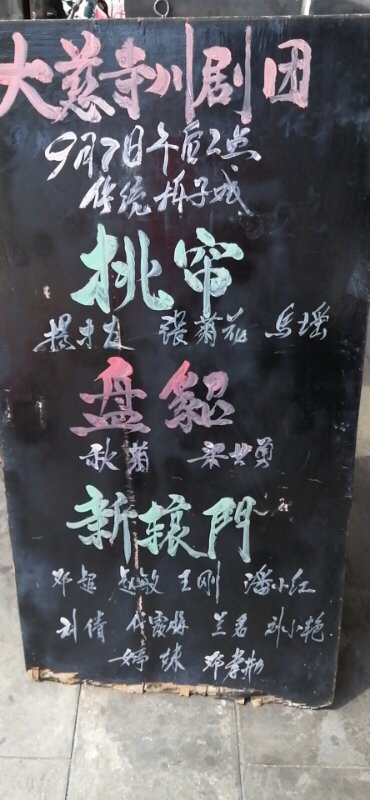 大慈寺川剧团
9月7日午后2点
传统折子戏
挑帘
張菊花 馬瑶
盘貂
秋菊 梁世勇
新辕門
邓超 赵敏 王刚 潘小红
刘倩 兰君 孙小艳
婷妹 邓孝勋